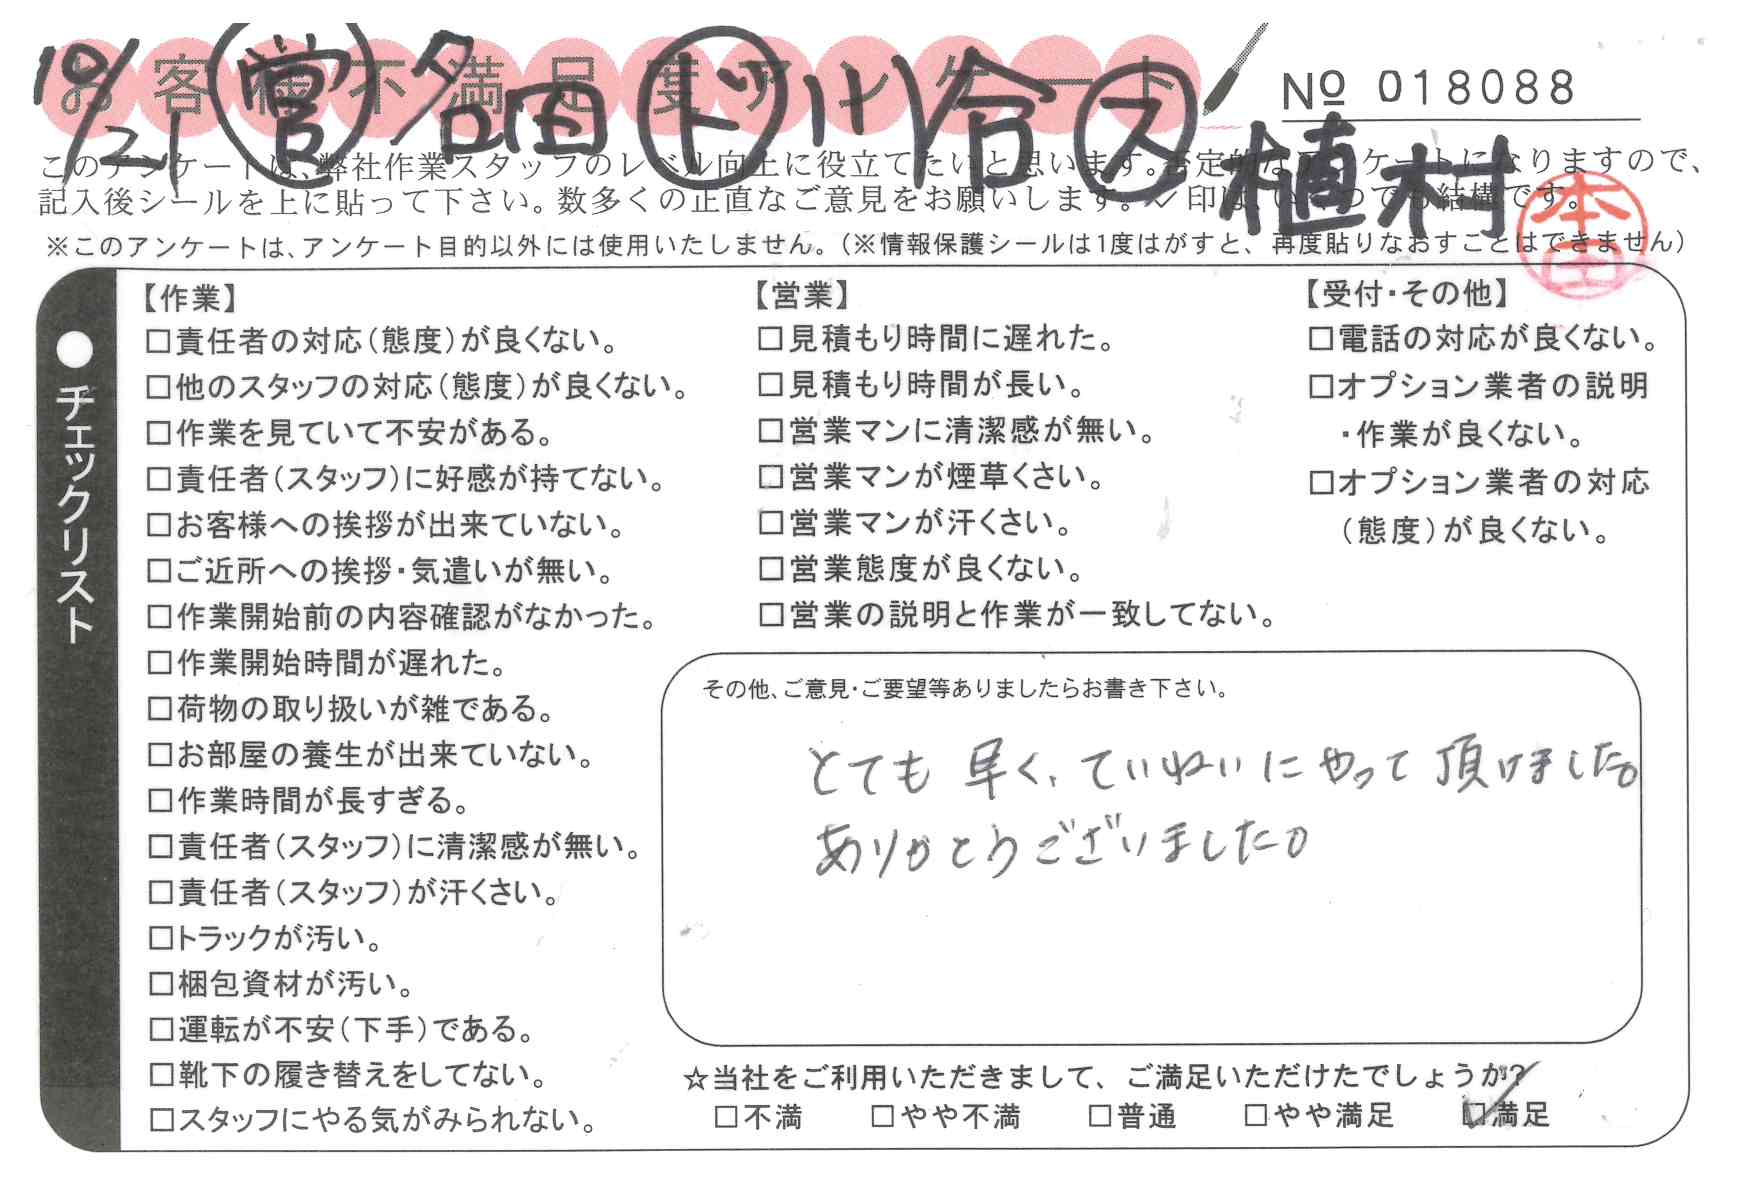 10/21 営 名田 ト 川合 ス 植村
お客様不満足度アンケート
№ 018088
このアンケートは、弊社作業スタッフのレベル向上に役立てたいと思います。否定的なアンケートになりますので、
記入後シールを上に貼って下さい。数多くの正直なご意見をお願いします。✓印は、いくつでも結構です。
本田
※このアンケートは、アンケート目的以外には使用いたしません。（※情報保護シールは1度はがすと、再度貼りなおすことはできません）
●チェックリスト
【作業】
□責任者の対応（態度）が良くない。
□他のスタッフの対応（態度）が良くない。
□作業を見ていて不安がある。
□責任者（スタッフ）に好感が持てない。
□お客様への挨拶が出来ていない。
□ご近所への挨拶・気遣いが無い。
□作業開始前の内容確認がなかった。
□作業開始時間が遅れた。
□荷物の取り扱いが雑である。
□お部屋の養生が出来ていない。
□作業時間が長すぎる。
□責任者（スタッフ）に清潔感が無い。
□責任者（スタッフ）が汗くさい。
□トラックが汚い。
□梱包資材が汚い。
□運転が不安（下手）である。
□靴下の履き替えをしてない。
□スタッフにやる気がみられない。
【営業】
□見積もり時間に遅れた。
□見積もり時間が長い。
□営業マンに清潔感が無い。
□営業マンが煙草くさい。
□営業マンが汗くさい。
□営業態度が良くない。
□営業の説明と作業が一致してない。
【受付・その他】
□電話の対応が良くない。
□オプション業者の説明
・作業が良くない。
□オプション業者の対応
（態度）が良くない。
その他、ご意見・ご要望等ありましたらお書き下さい。
とても早く、ていねいにやって頂けました。
ありがとうございました。
☆当社をご利用いただきまして、ご満足いただけたでしょうか?
□不満 □やや不満 □普通 □やや満足 ☑満足